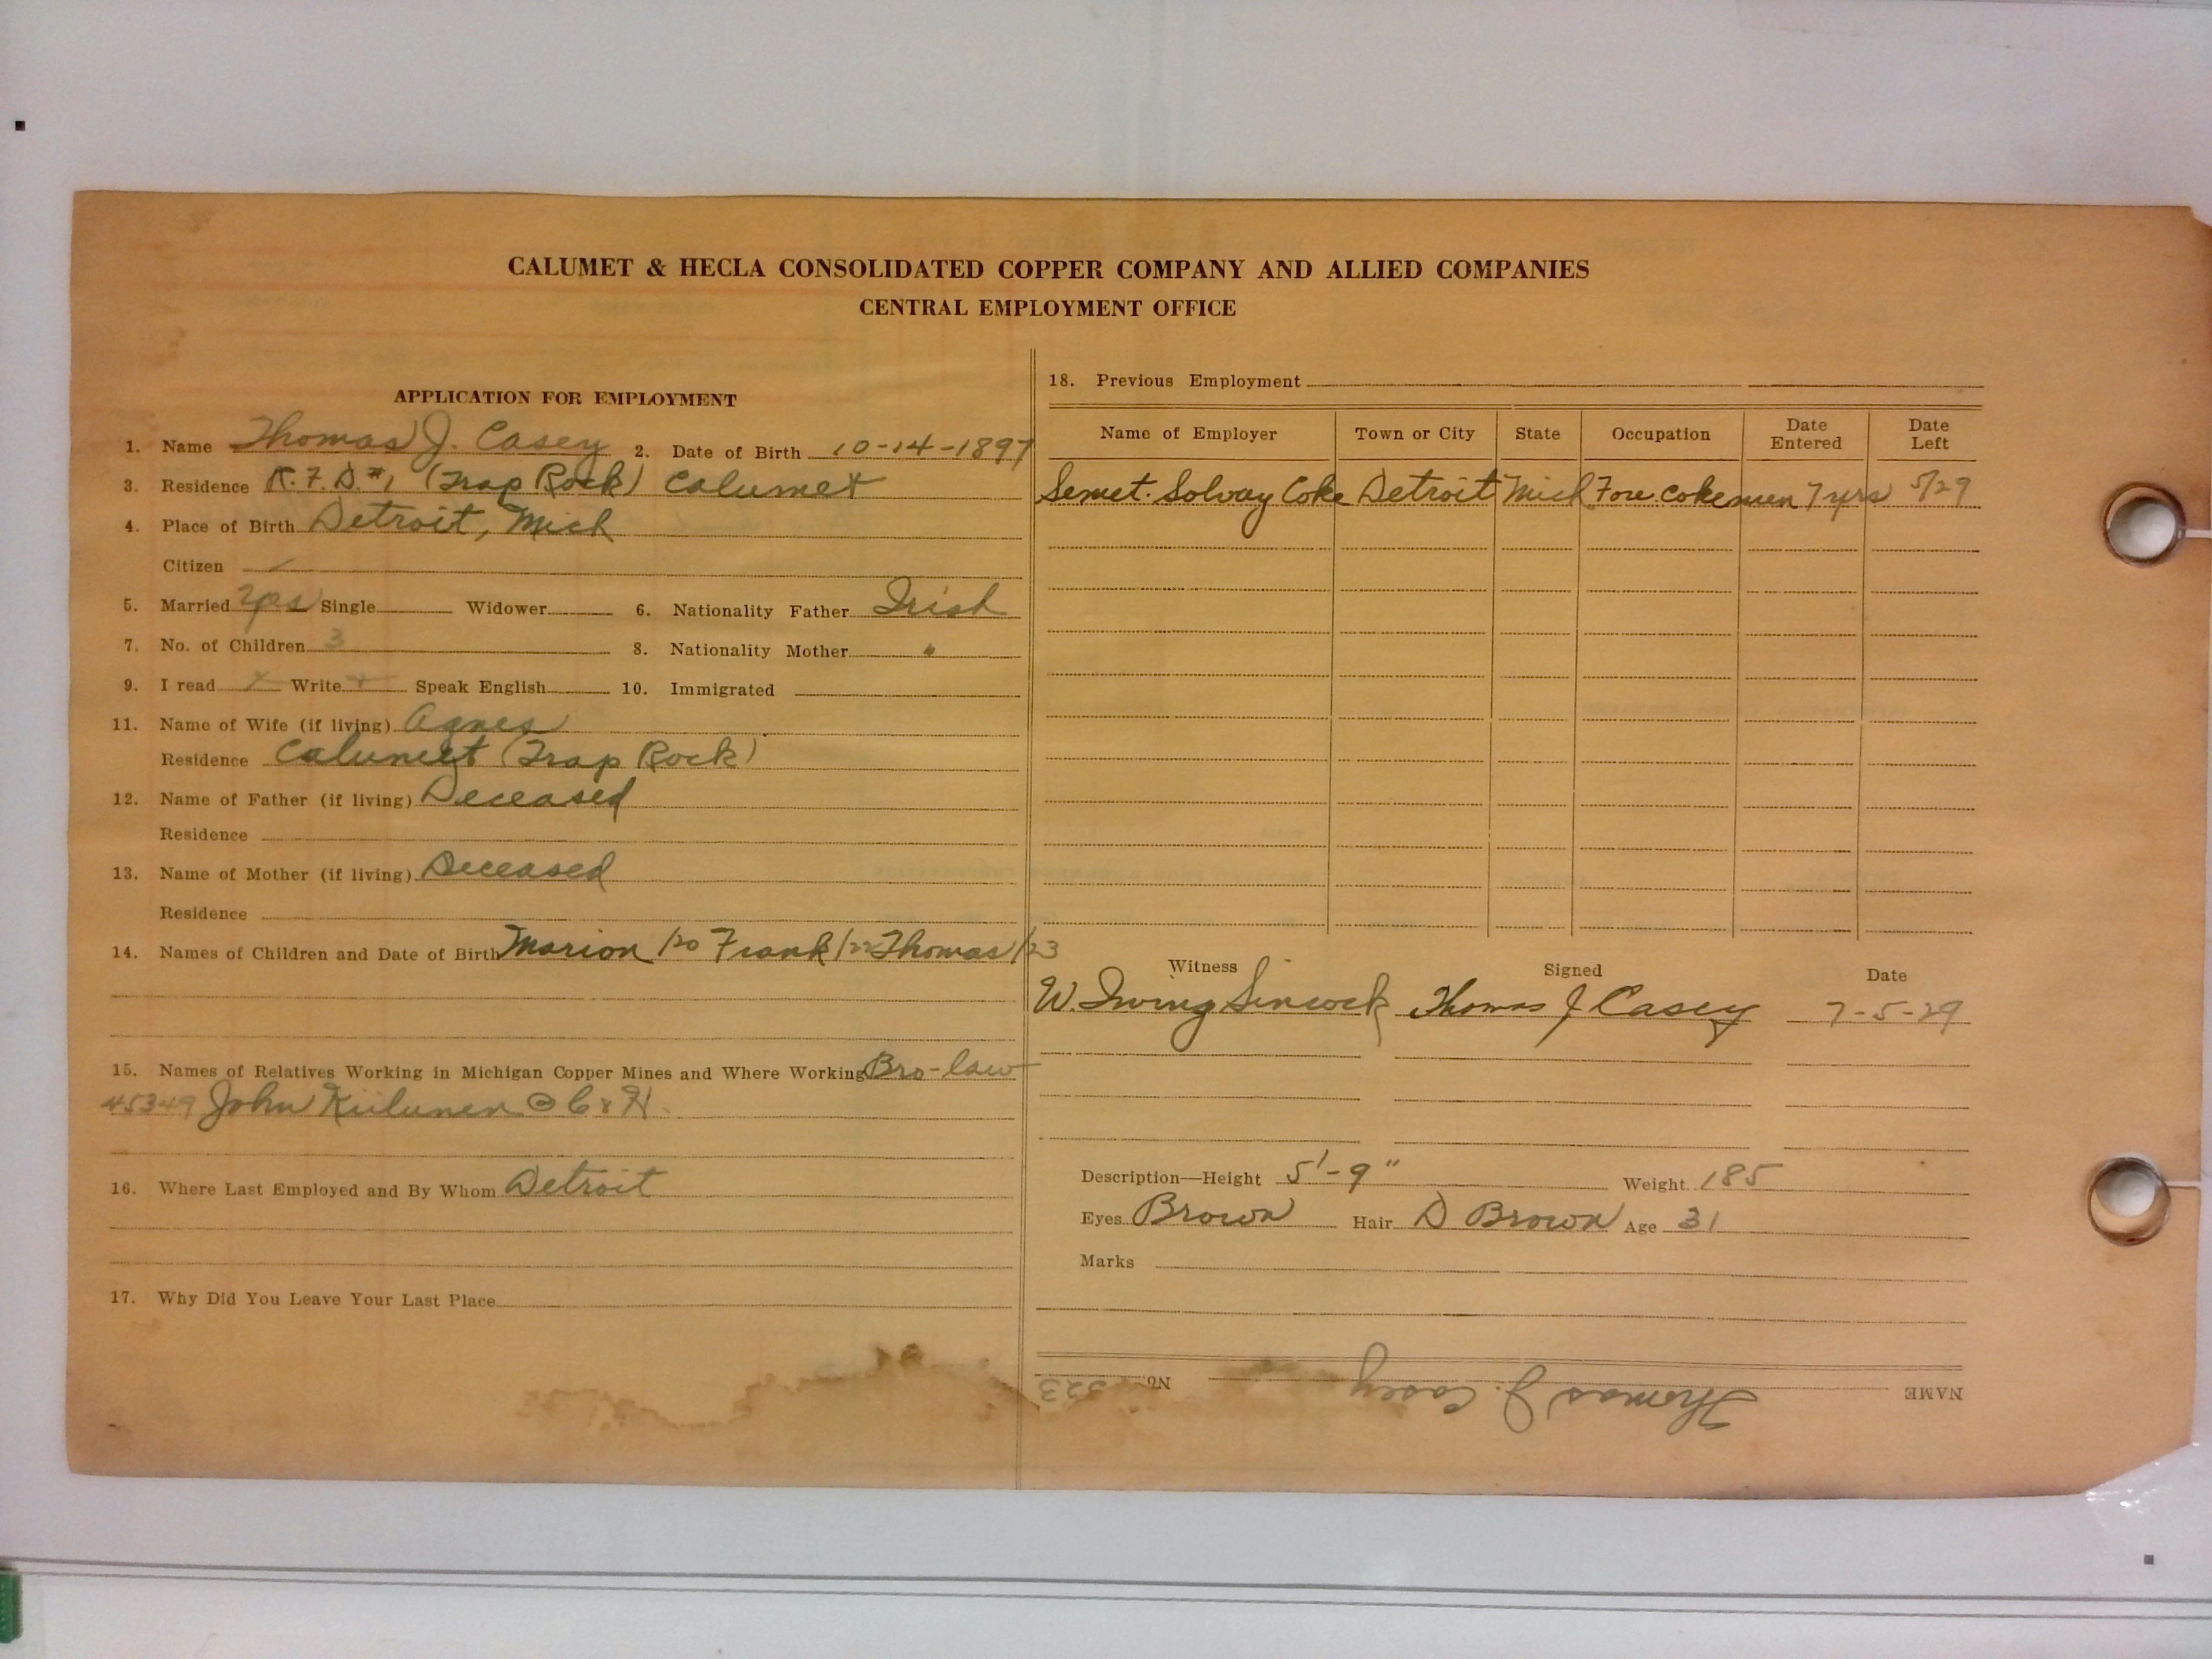 CALUMET & HECLA CONSOLIDATED COPPER COMPANY AND ALLIED COMPANIES
CENTRAL EMPLOYMENT OFFICE
APPLICATION FOR EMPLOYMENT
1. Name Thomas J. Casey 2. Date of Birth 10-14-1897
3. Residence R.F.D. #1 (Trap Rock) Calumet
4. Place of Birth Detroit, Mich
Citizen
5. Married yes Single Widower 6. Nationality Father Irish
7. No. of Children 3 8. Nationality Mother "
9. I read x Write x Speak English 10. Immigrated
11. Name of Wife (if living) Agnes
Residence Calumet (Trap Rock)
12. Name of Father (if living) Deceased
Residence
13. Name of Mother (if living) Deceased
Residence
14. Names of Children and Date of Birth Marion /20 Frank /22 Thomas /23
15. Names of Relatives Working in Michigan Copper Mines and Where Working Bro-law
45349 John Kiilunen @ C & H.
16. Where Last Employed and By Whom Detroit
17. Why Did You Leave Your Last Place
18. Previous Employment
Name of Employer Town or City State Occupation Date Entered Date Left
Semet. Solvay Coke Detroit Mich Fore. cokemen 7 yrs 5/29
Witness Signed Date
W. Irving Sincock Thomas J Casey 7-5-29
Description—Height 5'-9" Weight 185
Eyes Brown Hair D Brown Age 31
Marks
NAME Thomas J. Casey No. 323